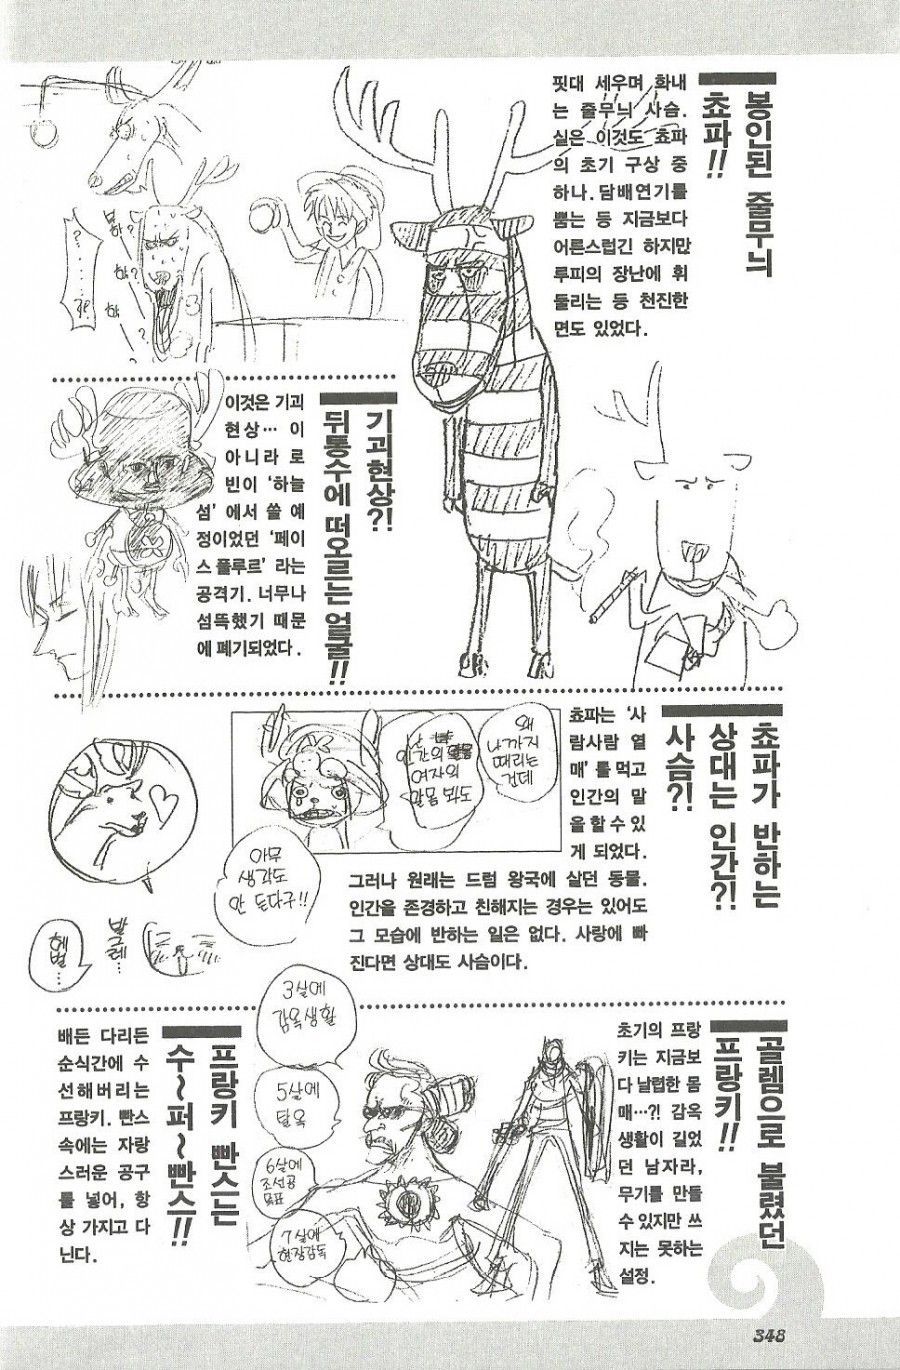 봉인된 줄무늬
쵸파!!
핏대 세우며 화내
는 줄무늬 사슴.
실은 이것도 쵸파
의 초기 구상 중
하나. 담배연기를
뿜는 등 지금보다
어른스럽긴 하지만
루피의 장난에 휘
둘리는 등 천진한
면도 있었다.
기괴현상?!
뒤통수에 떠오르는 얼굴!!
이것은 기괴
현상… 이
아니라 로
빈이 '하늘
섬'에서 쓸 예
정이었던 '페이
스 플루르' 라는
공격기. 너무나
섬뜩했기 때문
에 폐기되었다.
쵸파가 반하는
상대는 인간?!
사슴?!
쵸파는 '사
람사람 열
매'를 먹고
인간의 말
을 할 수 있
게 되었다.
그러나 원래는 드럼 왕국에 살던 동물.
인간을 존경하고 친해지는 경우는 있어도
그 모습에 반하는 일은 없다. 사랑에 빠
진다면 상대도 사슴이다.
왜
나까지
때리는
건데
인간의
여자의
알몸 봐도
아무
생각도
안 든다구!!
발그레…
헤벌…
골렘으로 불렸던
프랑키!!
초기의 프랑
키는 지금보
다 날렵한 몸
매…?! 감옥
생활이 길었
던 남자라,
무기를 만들
수 있지만 쓰
지는 못하는
설정.
3살에
감옥생활
5살에
탈옥
6살에
조선공
목표
7살에
현장감독
프랑키 빤스는
수~퍼~빤스!!
배든 다리든
순식간에 수
선해버리는
프랑키. 빤스
속에는 자랑
스러운 공구
를 넣어, 항
상 가지고 다
닌다.
348